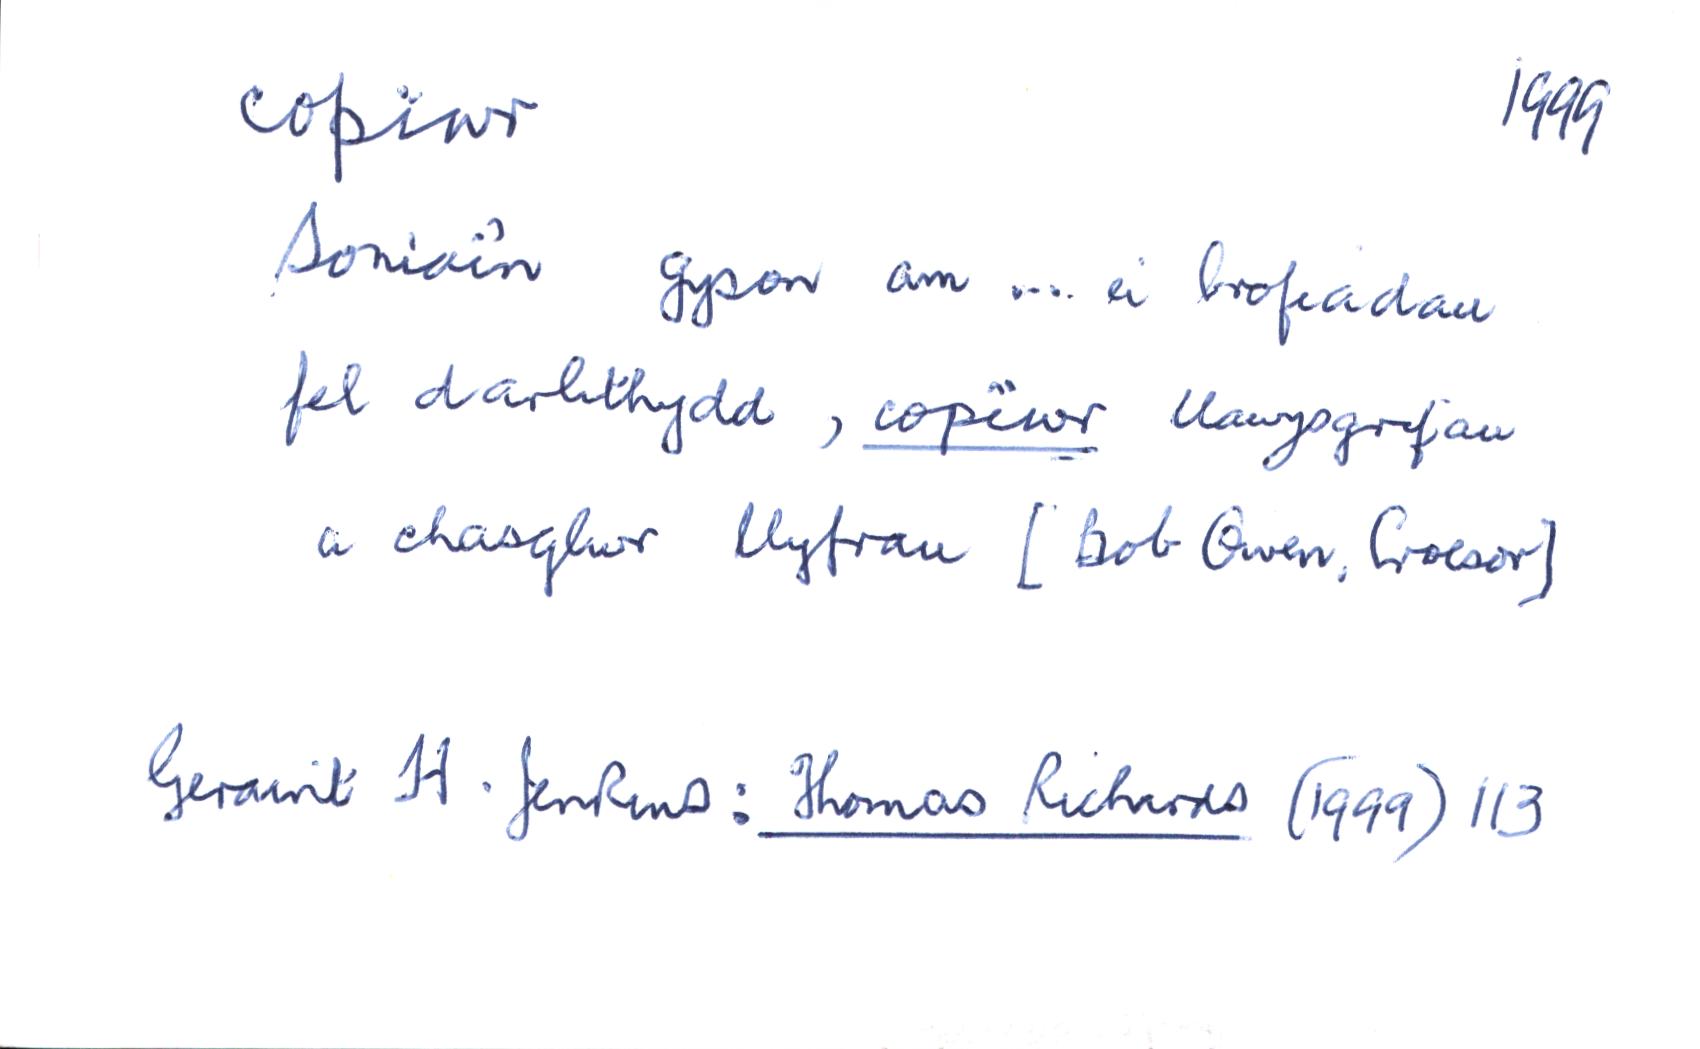 copïwr 1999
Soniai'n gyson am ... ei brofiadau
fel darlithydd, copïwr llawysgrifau
a chasglwr llyfrau [Bob Owen, Croesor]
Geraint H. Jenkins: Thomas Richards (1999) 113